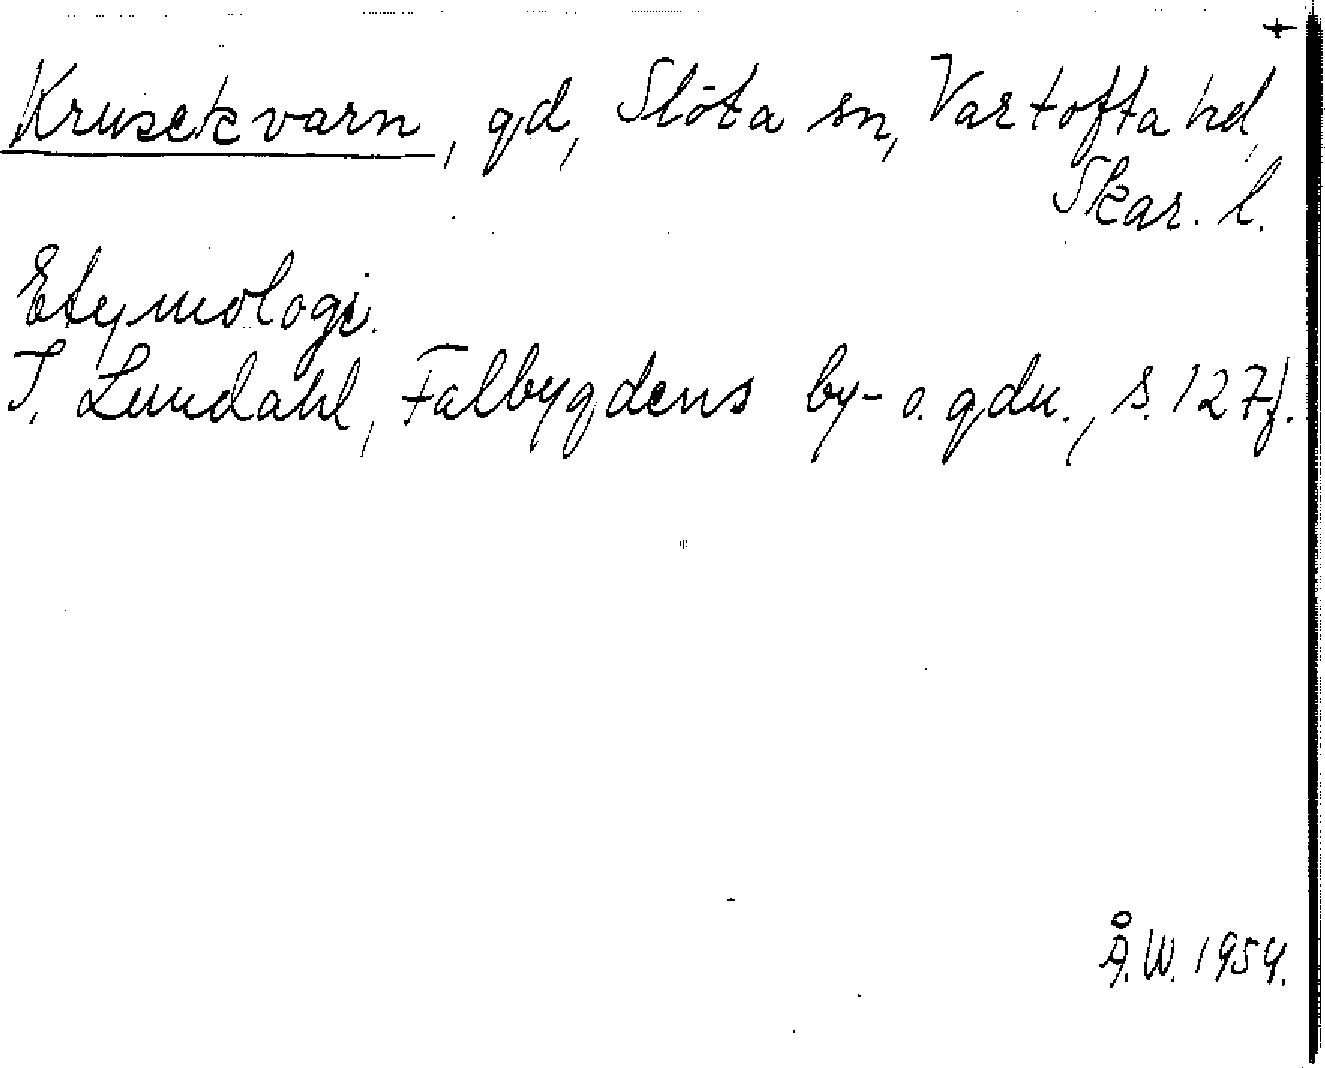 +
Krusekvarn, gd, Slöta sn, Vartofta hd,
Skar. l.
Etymologi.
I. Lundahl, Falbygdens by- o. gdn., s. 127 f.
Å.W. 1954.